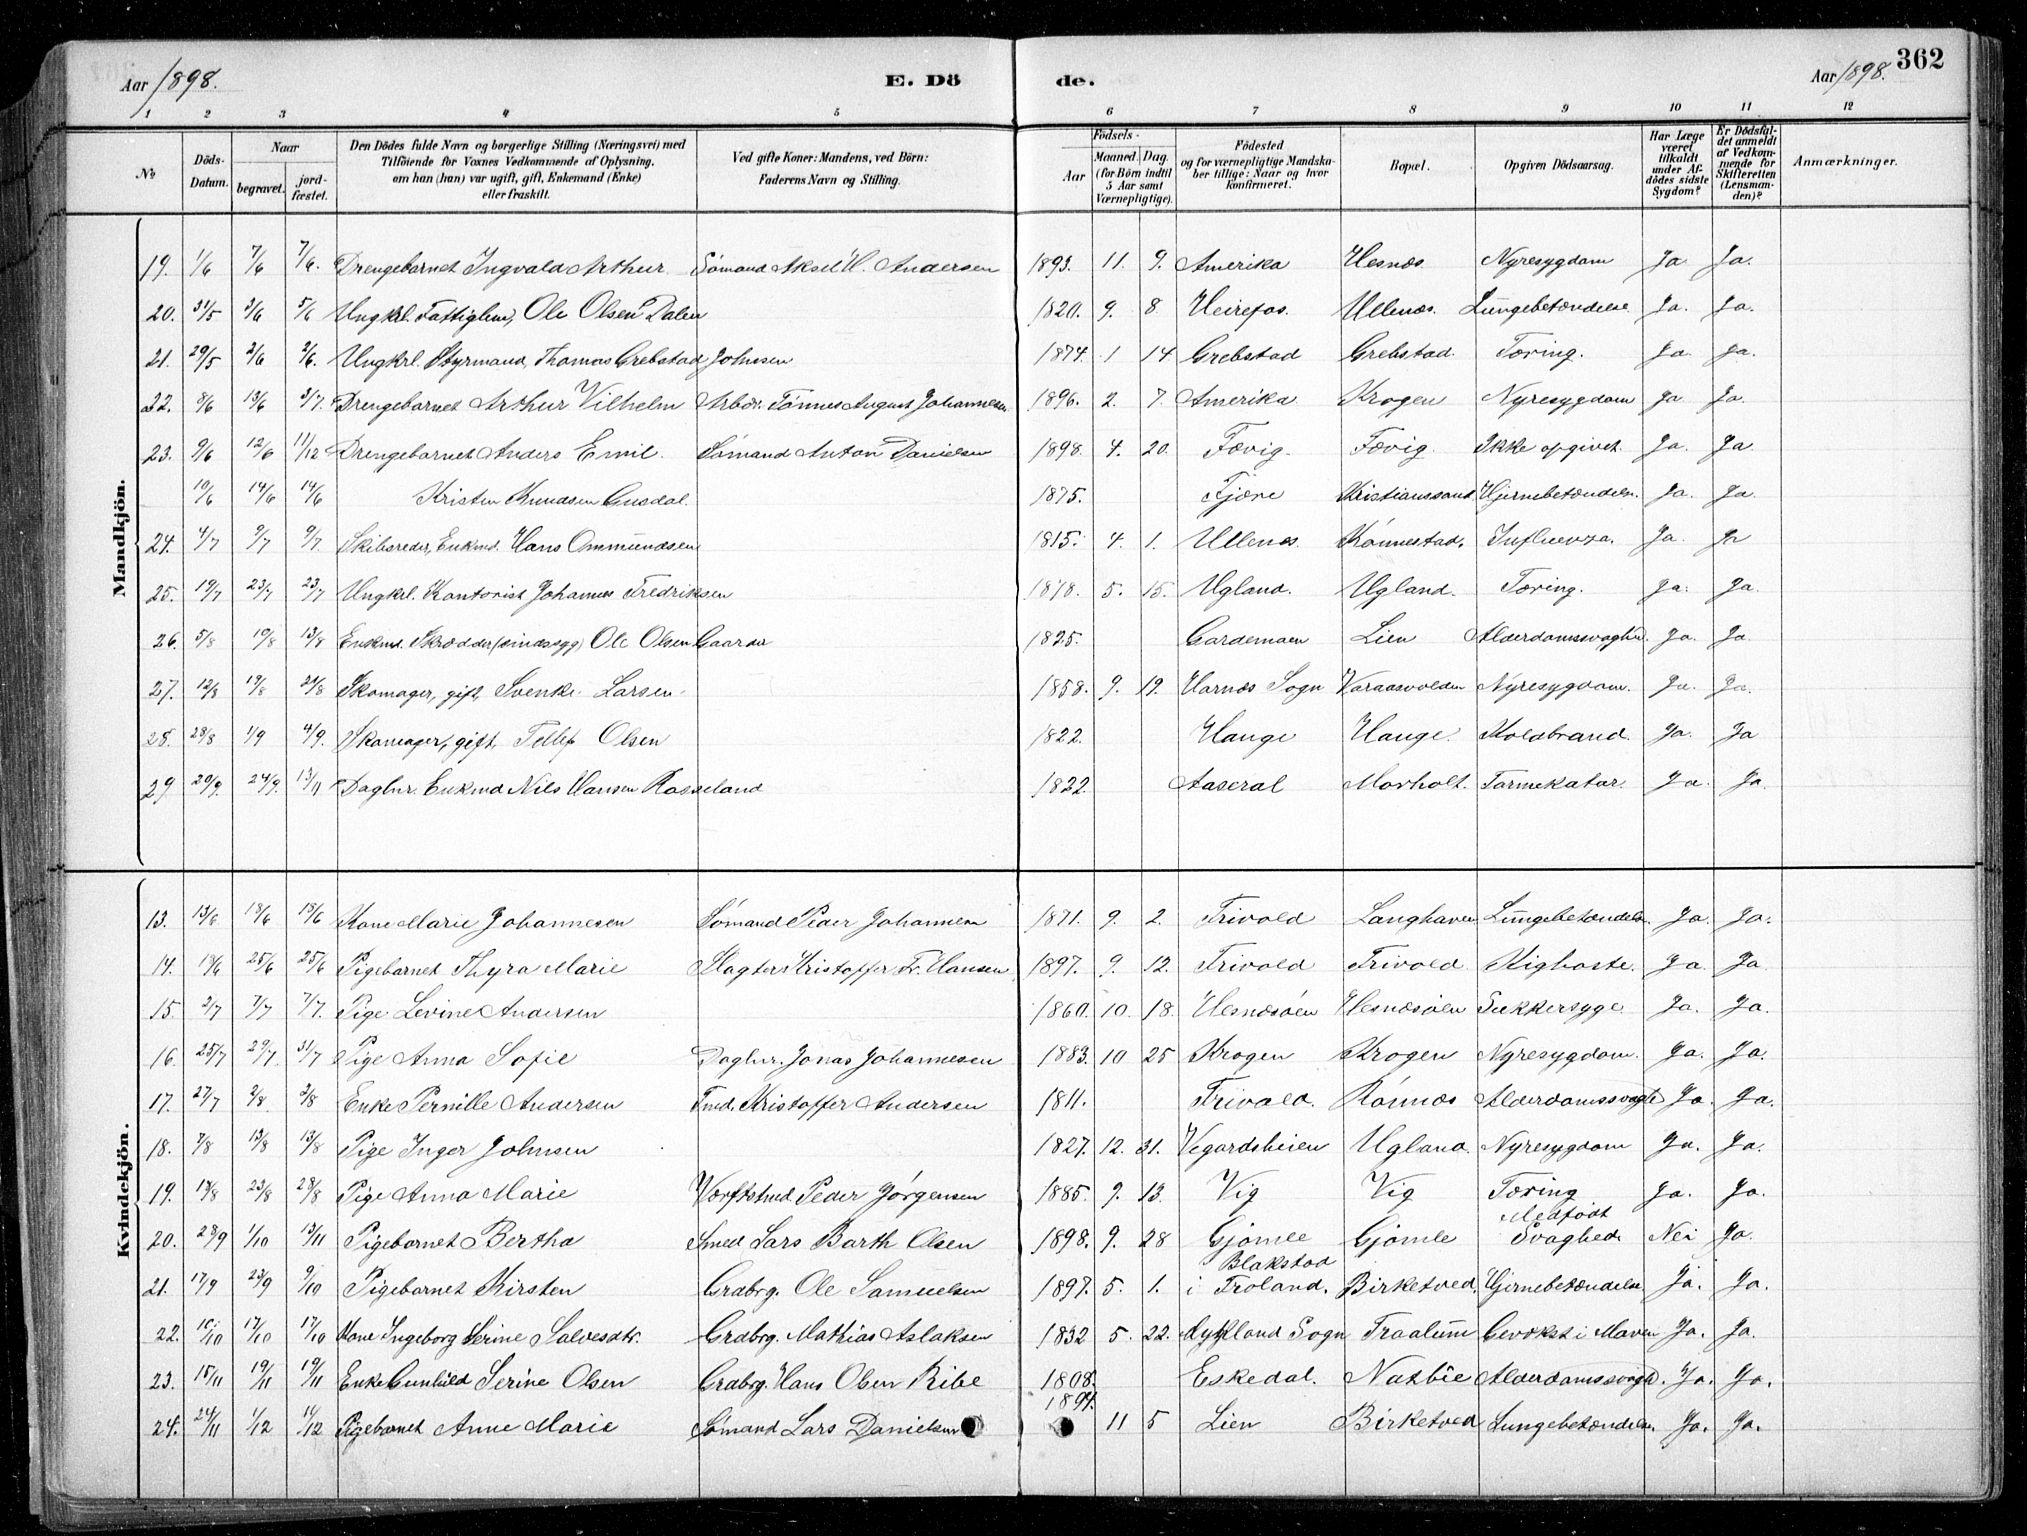 362
Aar 1898. E. Dö de. Aar 1898.
1 2 3 4 5 6 7 8 9 10 11 12
No
Döds-Datum.
Naar
begravet. jord-fæstet.
Den Dödes fulde Navn og borgerlige Stilling (Næringsvei) med
Tilföiende for Voxnes Vedkommende af Oplysning,
om han (hun) var ugift, gift, Enkemand (Enke)
eller fraskilt.
Ved gifte Koner: Mandens, ved Börn:
Faderens Navn og Stilling.
Födsels-
Aar Maaned. Dag.
(for Börn indtil
5 Aar samt
Værnepligtige).
Födested
og for værnepligtige Mandska-
ber tillige: Naar og hvor
konfirmeret.
Bopæl.
Opgiven Dödsaarsag.
Har Læge
været
tilkaldt
under Af-
dödes sidste
Sygdom?
Er Dödsfal-
det anmeldt
af Vedkom-
mende for
Skifteretten
(Lensman-
den)?
Anmærkninger.
Mandkjön.
19. 1/6 7/6 7/6. Drengebarnet Ingvald Arthur Sömand Aksel H. Andersen 1893. 11. 9. Amerika Hesnæs. Nyresygdom Ja. Ja.
20. 31/5 3/6 5/6 Ungkrl. Fattiglem, Ole Olsen Dalen 1820. 9. 8 Heirefos. Ullenæs. Lungebetændelse Ja. Ja.
21. 29/5 2/6 2/6. Ungkrl. Styrmand, Thomas Grebstad Johnsen 1874. 1 14 Grebstad Grebstad. Tæring. Ja. Ja.
22. 8/6 13/6 3/7. Drengebarnet Arthur Vilhelm Arbdr. Tönnes August Johannesen 1896. 2. 7. Amerika Krogen Nyresygdom Ja Ja.
23. 9/6 12/6 11/12 Drengebarnet Anders Emil. Sömand Anton Danielsen 1898. 4. 20. Fævig. Fævig. Ikke opgivet. Ja. Ja
10/6 14/6 14/6 Kristen Knudsen Gusdal. 1875. Fjære Kristianssand Hjernebetændelse. Ja. Ja
24. 4/7 9/7 9/7. Skibsreder, Enkmd. Hans Ommundsen 1815. 4. 1. Ullenæs. Rönnestad. Influenza. Ja. Ja
25. 19/7 23/7 23/7 Ungkrl. Kontorist Johannes Fredriksen 1878. 5. 15. Ugland. Ugland. Tæring. Ja. Ja.
26. 5/8 10/8 13/8 Enkmd. Skrædder (sindssyg) Ole Olsen Gaarder 1825. Gardemoen Lien Alderdomssvaghed. Ja. Ja
27. 12/8 19/8 21/8 Skomager, gift, Svenke Larsen. 1858. 9. 19. Harnæs Sogn Voraasvolden Nyresygdom. Ja. Ja.
28. 28/8 1/9 4/9. Skomager, gift, Tellef Olsen 1822. Hauge Hauge. Koldbrand. Ja. Ja
29 20/9. 24/9. 13/11 Daglnr. Enkmd Nils Hansen Rosseland 1822. Aaseral Morholt. Tarmekatar. Ja. Ja.
Kvindekjön.
13. 13/6 18/6 18/6 Kone Marie Johannesen Sömand Peder Johannesen 1871. 9. 2. Trivold Langhaven Lungebetændelse. Ja. Ja.
14. 19/6 25/6 25/6 Pigebarnet Thyra Marie Slagter Kristoffer Fr. Hansen 1897. 9. 12. Trivold Trivold Kighoste. Ja. Ja
15. 2/7 7/7 7/7. Pige Levine Andersen 1860. 10. 18. Hesnæsöen Hesnæsöen Sukkersyge Ja. Ja.
16. 25/7 29/7. 31/7 Pige Anna Sofie Daglnr. Jonas Johannesen 1883. 10 25 Krogen Krogen Nyresygdom. Ja. Ja.
17. 27/7 2/8. 2/8 Enke Pernille Andersen Tmd. Kristoffer Andersen 1811. Trivold. Rönnæs Alderdomssvaghed Ja. Ja.
18. 7/8 13/8 13/8 Pige Inger Johnsen 1827. 12. 31. Vegardsheien Ugland. Nyresygdom Ja. Ja.
19. 19/8 23/8 28/8 Pige Anna Marie Værftstmd. Peder Jørgensen 1885. 9. 13. Vig Vig Tæring Ja. Ja.
20. 28/9 1/10 13/11 Pigebarnet Bertha Smed Lars Barth Olsen 1898. 9. 28 Gjömle Gjömle Medfödt Svaghed. Nei Ja.
21. 17/9 23/9 9/10 Pigebarnet Kirsten Grdbrg. Ole Samuelsen 1897. 5. 1. Blakstad i Froland. Birketved. Hjernebetændelse Ja. Ja.
22. 10/10 17/10 17/10 Kone Ingeborg Serine Salvesdtr. Grdbrg. Mathias Aslaksen 1832 5. 22. Sogn Traalum Gevækst i Maven Ja. Ja.
23. 15/11 19/11 19/11 Enke Gunhild Serine Olsen Grdbrg. Hans Olsen Ribe 1808. Eskedal. Natbie Alderdomssvaghd. Ja. Ja.
24. 24/11 1/12 11/12 Pigebarnet Anne Marie Sömand Lars Danielsen 1894. 11 5 Lien Birketved Lungebetændelse. Ja. Ja.